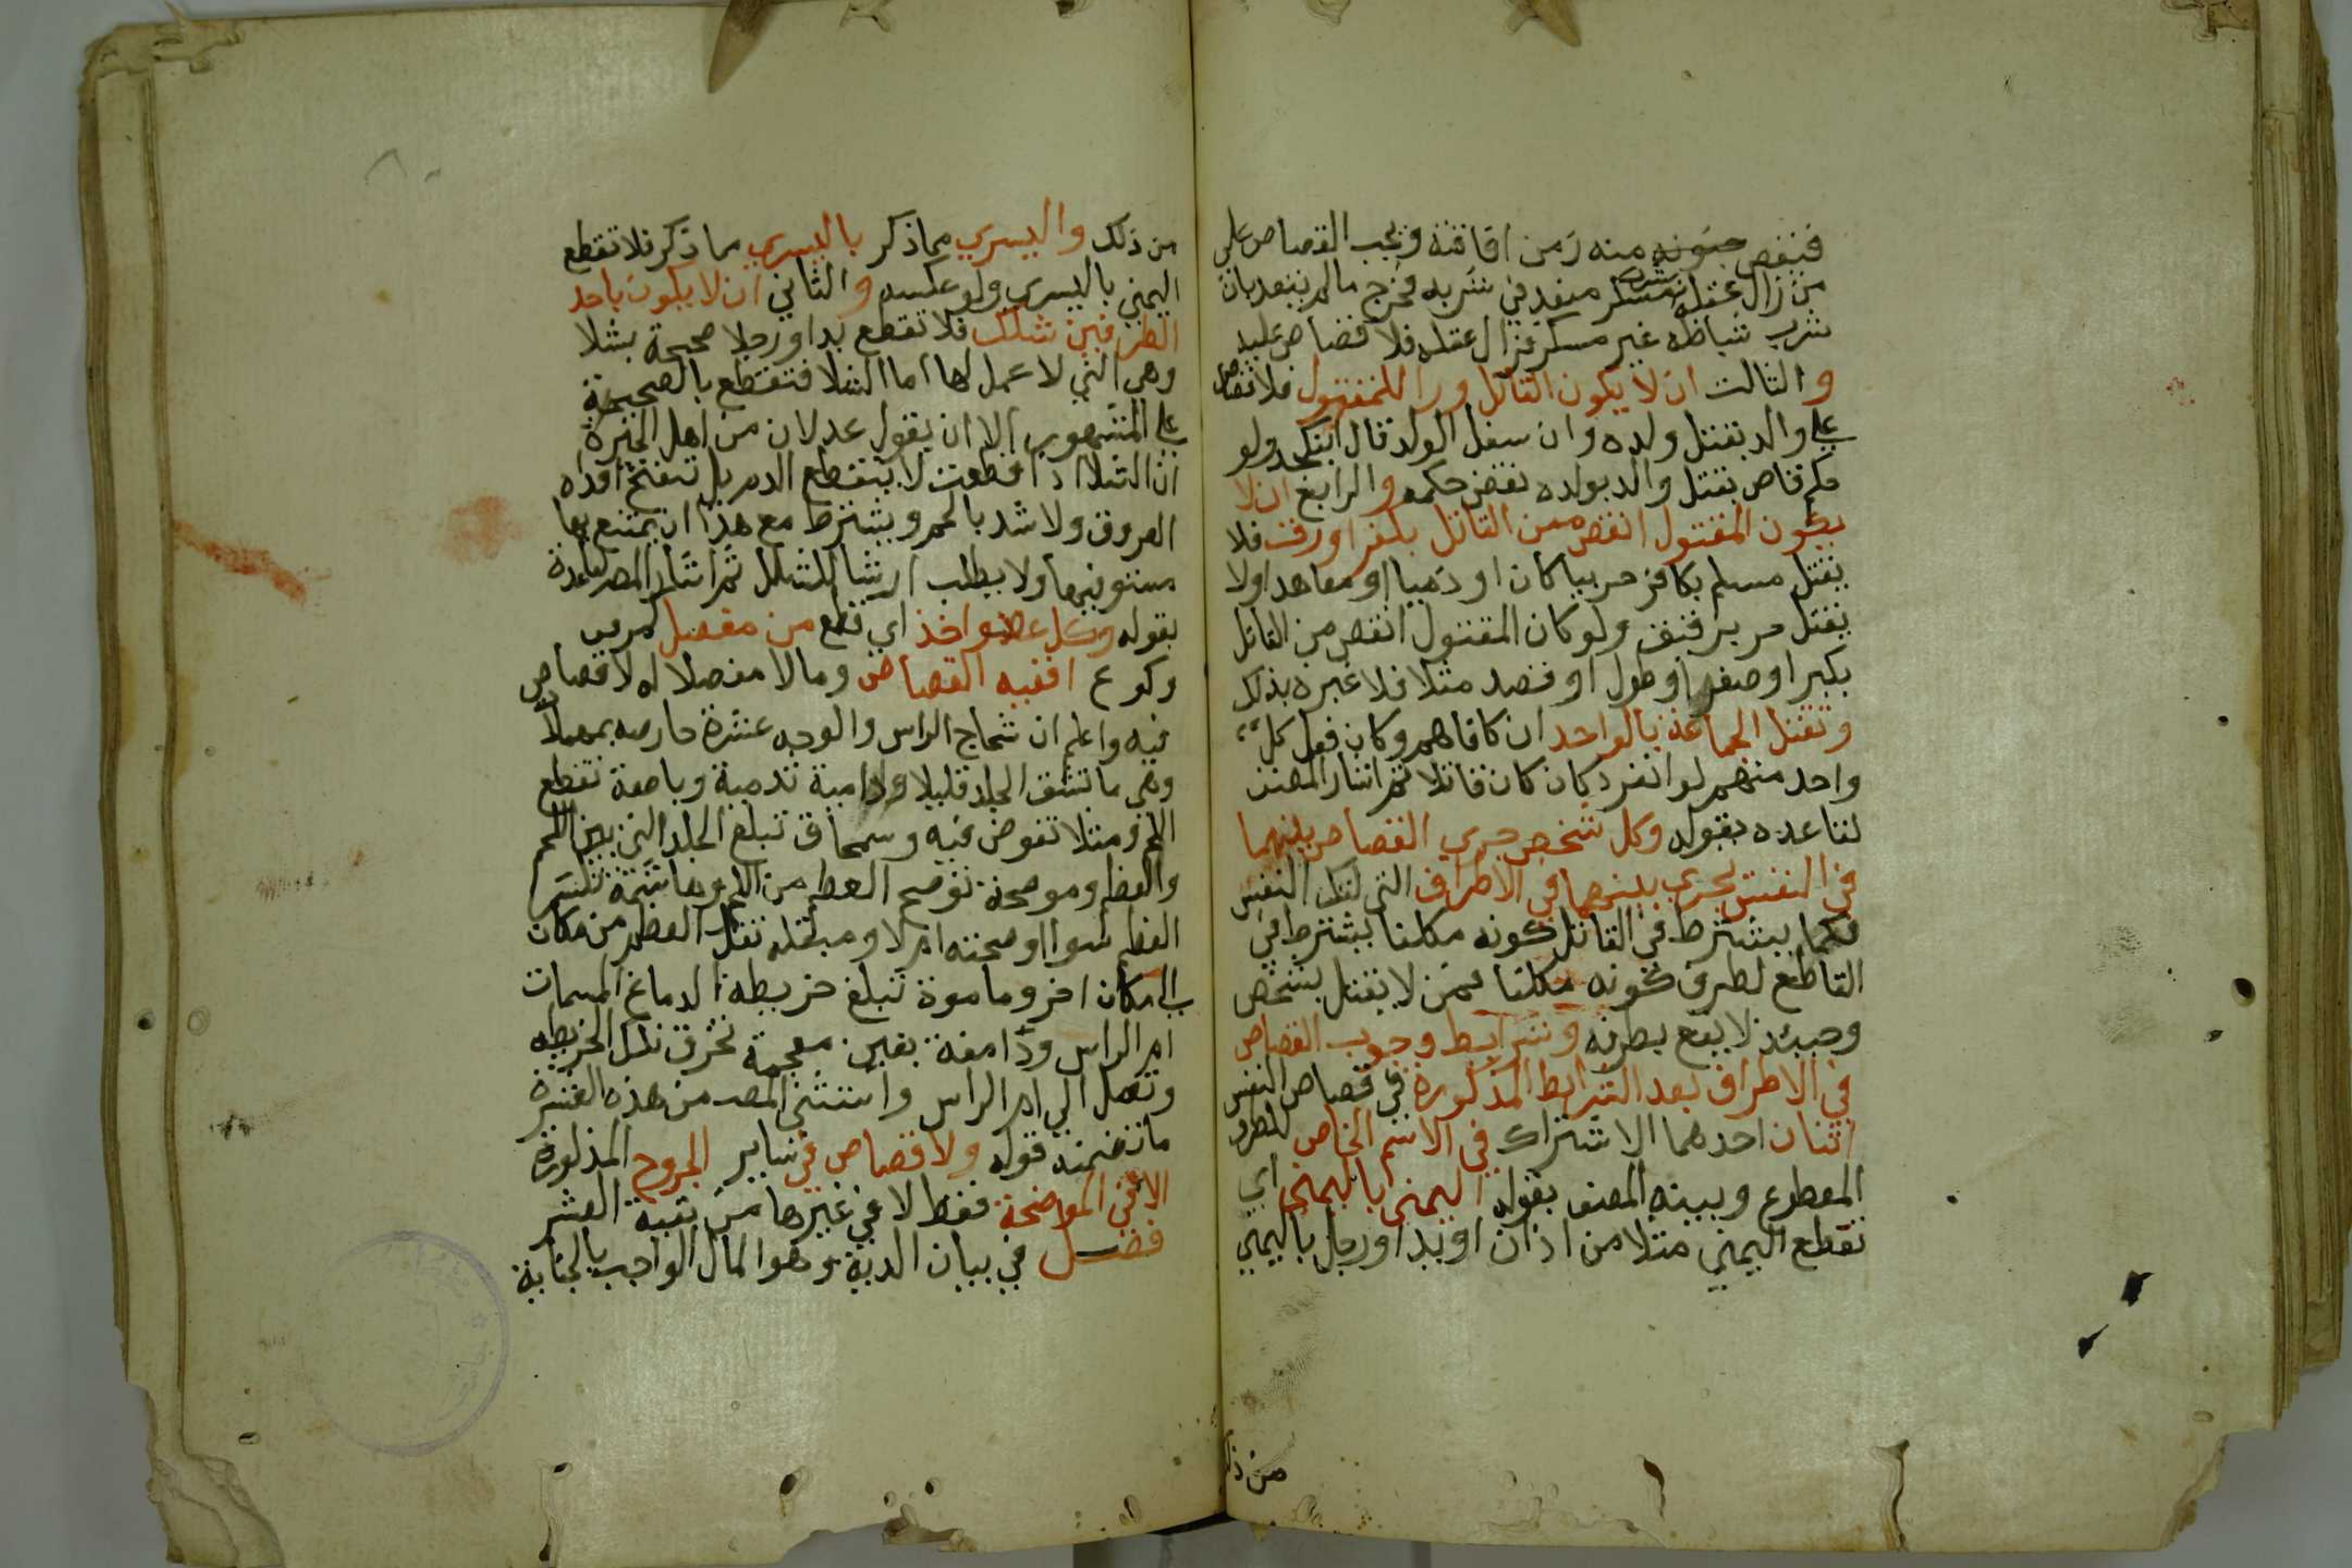 فيقتص جنونه منه زمن افاقته ويجب القصاص على
من زال عقله بشرب مسكر متعد في شربه فخرج مالم يتعد بان
شرب شياظنه غير مسكر فزال عقله فلا قصاص عليه
والثالث ان لا يكون القاتل والدا للمقتول فلا قصاص
على والد بقتل ولده وان سفل الولد قال ابن كج ولو
حكم قاض بقتل والد بولده نقض حكمه والرابع ان لا
يكون المقتول انقص من القاتل بكفر او رق فلا
يقتل مسلم بكافر حربيا كان او ذميا او معاهدا ولا
يقتل حر برقيق ولو كان المقتول انقص من القاتل
بكبر او صغر او طول او قصر مثلا فلا عبرة بذلك
وتقتل الجماعة بالواحد ان كافاهم وكان فعل كل
واحد منهم لو انفرد كان كان قاتلا ثم اشار المصنف
لقاعده بقوله وكل شخص جرى القصاص بينهما
في النفس يجري بينهما في الاطراف التي لتلك النفس
فكما يشترط في القاتل كونه مكلفا يشترط في
القاطع لطرف كونه مكلفا فمن لا يقتل بشخص
وحينئذ لا يقع بطرفه وشرايط وجوب القصاص
في الاطراف بعد الشرايط المذكورة في قصاص النفس
اثنان احدهما الاشتراك في الاسم الخاص للطرف
المقطوع وبينه المصنف بقوله اليمنى باليمنى اي
تقطع اليمنى مثلا من اذن او يد او رجل باليمنى
من ذلك
من ذلك واليسري مما ذكر باليسري مما ذكر فلا تقطع
اليمني باليسري ولو عكسه والثاني ان لا يكون باحد
الطرفين شلل فلا تقطع يدا ورجلا صحيحة بشلا
وهي التي لا عمل لها اما الشلا فتقطع بالصحيحة
على المشهور الا ان يقول عدلان من اهل الخبرة
ان الشلا اذا قطعت لا ينقطع الدم بل تنفتح افواه
العروق ولا تسد بالحسم ويشترط مع هذا ان يقتنع بها
مستوفيها ولا يطلب ارشا للشلل ثم اشار المص لقاعدة
بقوله وكل عضو اخذ اي قطع من مفصل كمرفق
وكوع ففيه القصاص وما لا مفصلا له لا قصاص
فيه واعلم ان شجاج الراس والوجه عشرة حارصه بمهملات
وهي ما تشق الجلد قليلا ودامية تدمية وباضعة تقطع
اللحم ومتلاحمة تغوص فيه وسمحاق تبلغ الجلد التي بين اللحم
والعظم وموضحة توضح العظم من اللحم وهاشمة تكسر
العظم سوا اوضحته ام لا ومنقله تنقل العظم من مكان
الى مكان اخر ومامومة تبلغ خريطة الدماغ المسمات
ام الراس ودامغة بغين معجمة تخرق تلك الخريطه
وتصل الي ام الراس واستثني المصـ من هذه العشرة
ما تضمنه قوله ولا قصاص في ساير الجروح المذكورة
الا في الموضحة فقط لا في غيرها من بقية العشر
فصل في بيان الدية وهو المال الواجب بالجناية